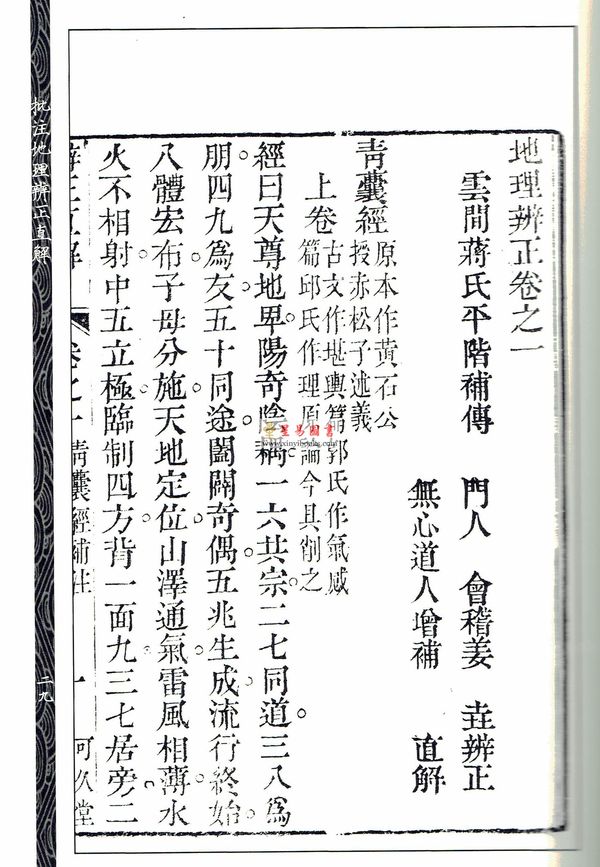 地理辨正卷之一
雲間蔣氏平階補傳 門人 會稽姜 垚辨正
無心道人增補 直解
青囊經 原本作黃石公
授赤松子述義
上卷 古文作堪輿篇郭氏作氣感
篇邱氏作理原論今具削之
經曰天尊地卑陽奇陰耦一六共宗二七同道三八為
朋四九為友五十同途闔闢奇偶五兆生成流行終始
八體宏布子母分施天地定位山澤通氣雷風相薄水
火不相射中五立極臨制四方背一面九三七居旁二
卷之一 青囊經補註 一 可久堂
批注地理辨正直解
二九
星易圖書
www.xinyibooks.com